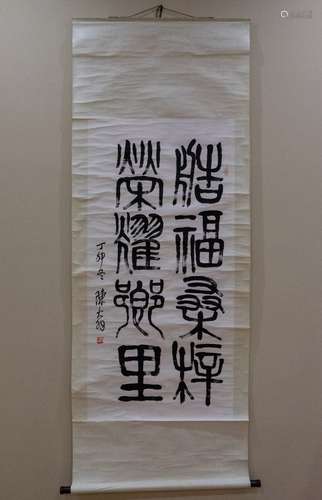 造福桑梓
榮耀鄉里
丁卯冬 陳大羽